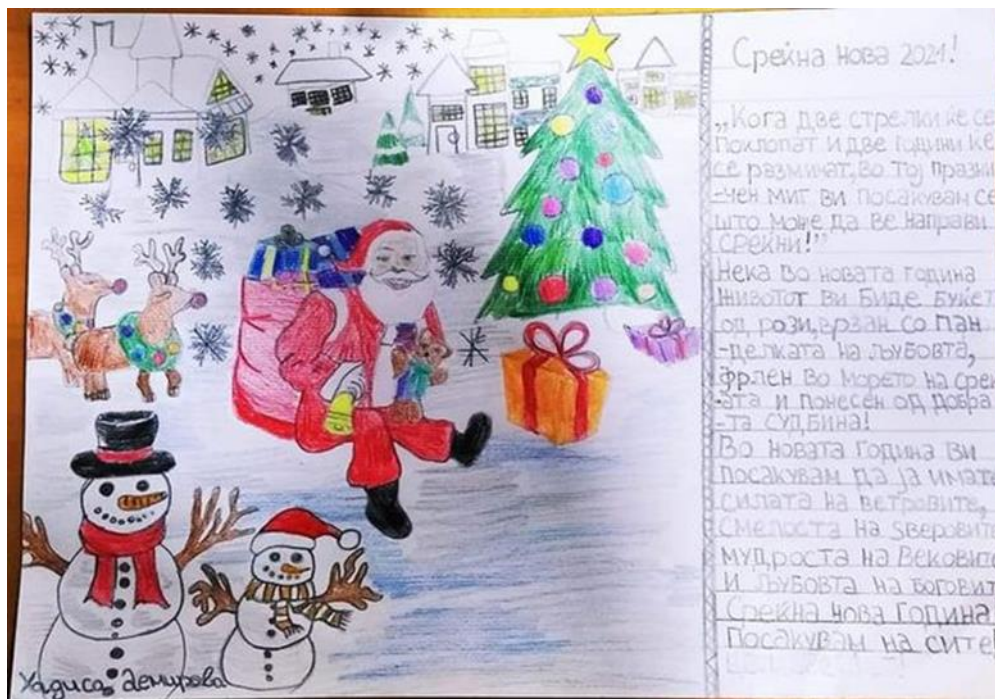 Среќна нова 2021!
„Кога две стрелки ќе се
поклопат и две години ќе
се разминат, во тој празни
-чен миг ви посакувам се
што може да ве направи
среќни!”
Нека во новата година
животот ви биде букет
од рози, врзан со пан
-делката на љубовта,
фрлен во морето на среќ
-ата и понесен од добра
-та судбина!
Во новата година ви
посакувам да ја имате
силата на ветровите,
смелоста на ѕверовите
мудроста на вековите
и љубовта на боговите
Среќна нова година
посакувам на сите
Хадиса Демирова